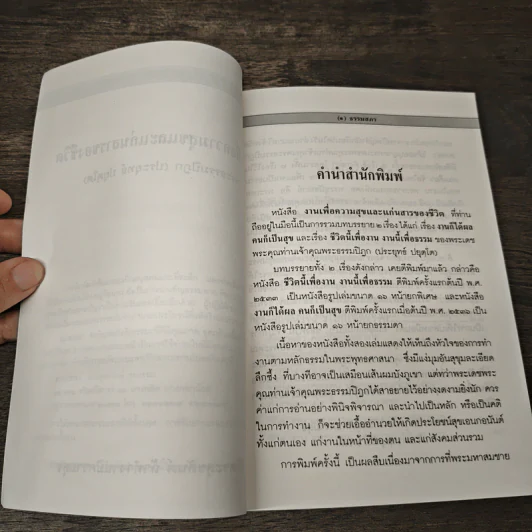 (๒) ธรรมสภา
คำนำสำนักพิมพ์
หนังสือ งานเพื่อความสุขและแก่นสารของชีวิต ที่ท่าน
ถืออยู่ในมือนี้เป็นการรวมบทบรรยาย ๒ เรื่อง ได้แก่ เรื่อง งานก็ได้ผล
คนก็เป็นสุข และเรื่อง ชีวิตนี้เพื่องาน งานนี้เพื่อธรรม ของพระเดช
พระคุณท่านเจ้าคุณพระธรรมปิฎก (ประยุทธ์ ปยุตฺโต)
บทบรรยายทั้ง ๒ เรื่องดังกล่าว เคยตีพิมพ์มาแล้ว กล่าวคือ
หนังสือ ชีวิตนี้เพื่องาน งานนี้เพื่อธรรม ตีพิมพ์ครั้งแรกต้นปี พ.ศ.
๒๕๓๓ เป็นหนังสือรูปเล่มขนาด ๑๖ หน้ายกพิเศษ และหนังสือ
งานก็ได้ผล คนก็เป็นสุข ตีพิมพ์ครั้งแรกเมื่อต้นปี พ.ศ. ๒๕๓๖ เป็น
หนังสือรูปเล่มขนาด ๑๖ หน้ายกธรรมดา
เนื้อหาของหนังสือทั้งสองเล่มแสดงให้เห็นถึงหัวใจของการทำ
งานตามหลักธรรมในพระพุทธศาสนา ซึ่งมีแง่มุมอันสุขุมละเอียด
ลึกซึ้ง ที่บางทีอาจเป็นเสมือนเส้นผมบังภูเขา แต่ทว่าพระเดชพระ
คุณท่านเจ้าคุณพระธรรมปิฎกได้สาธยายไว้อย่างงดงามยิ่งนัก ควร
ค่าแก่การอ่านอย่างพินิจพิจารณา และนำไปเป็นหลัก หรือเป็นคติ
ในการทำงาน ก็จะช่วยเอื้ออำนวยให้เกิดประโยชน์สุขเอนกอนันต์
ทั้งแก่ตนเอง แก่งานในหน้าที่ของตน และแก่สังคมส่วนรวม
การพิมพ์ครั้งนี้ เป็นผลสืบเนื่องมาจากการที่พระมหาสมชาย